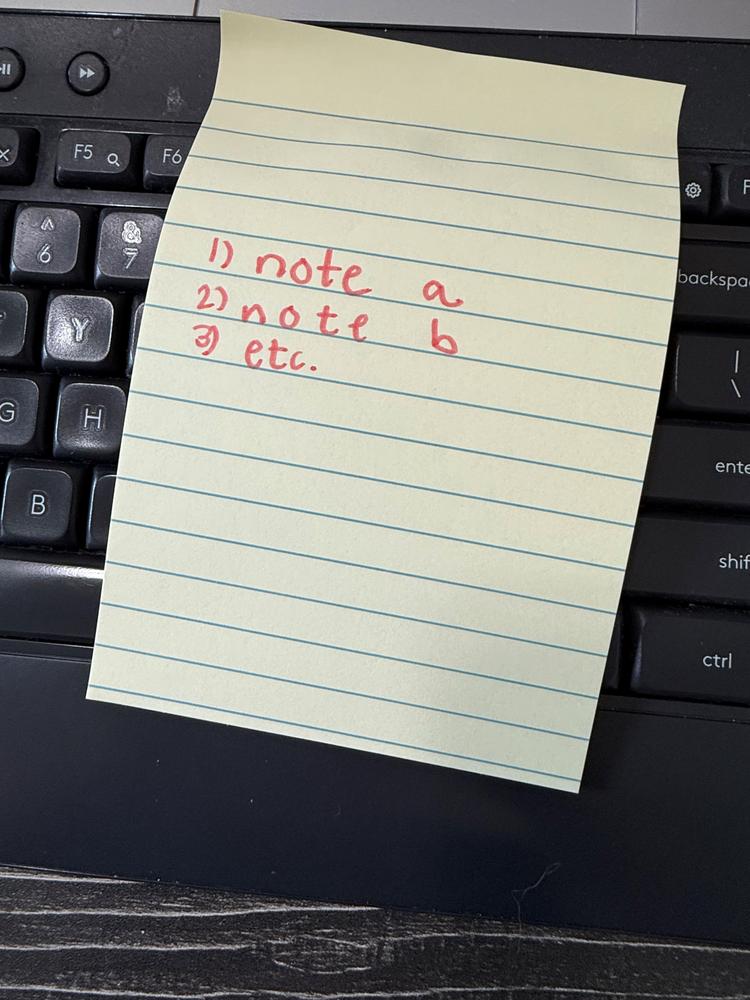 F5
F6
^
6
&
7
Y
G
H
B
F
backspac
|
\
ente
shif
ctrl
1) note a
2) note b
3) etc.